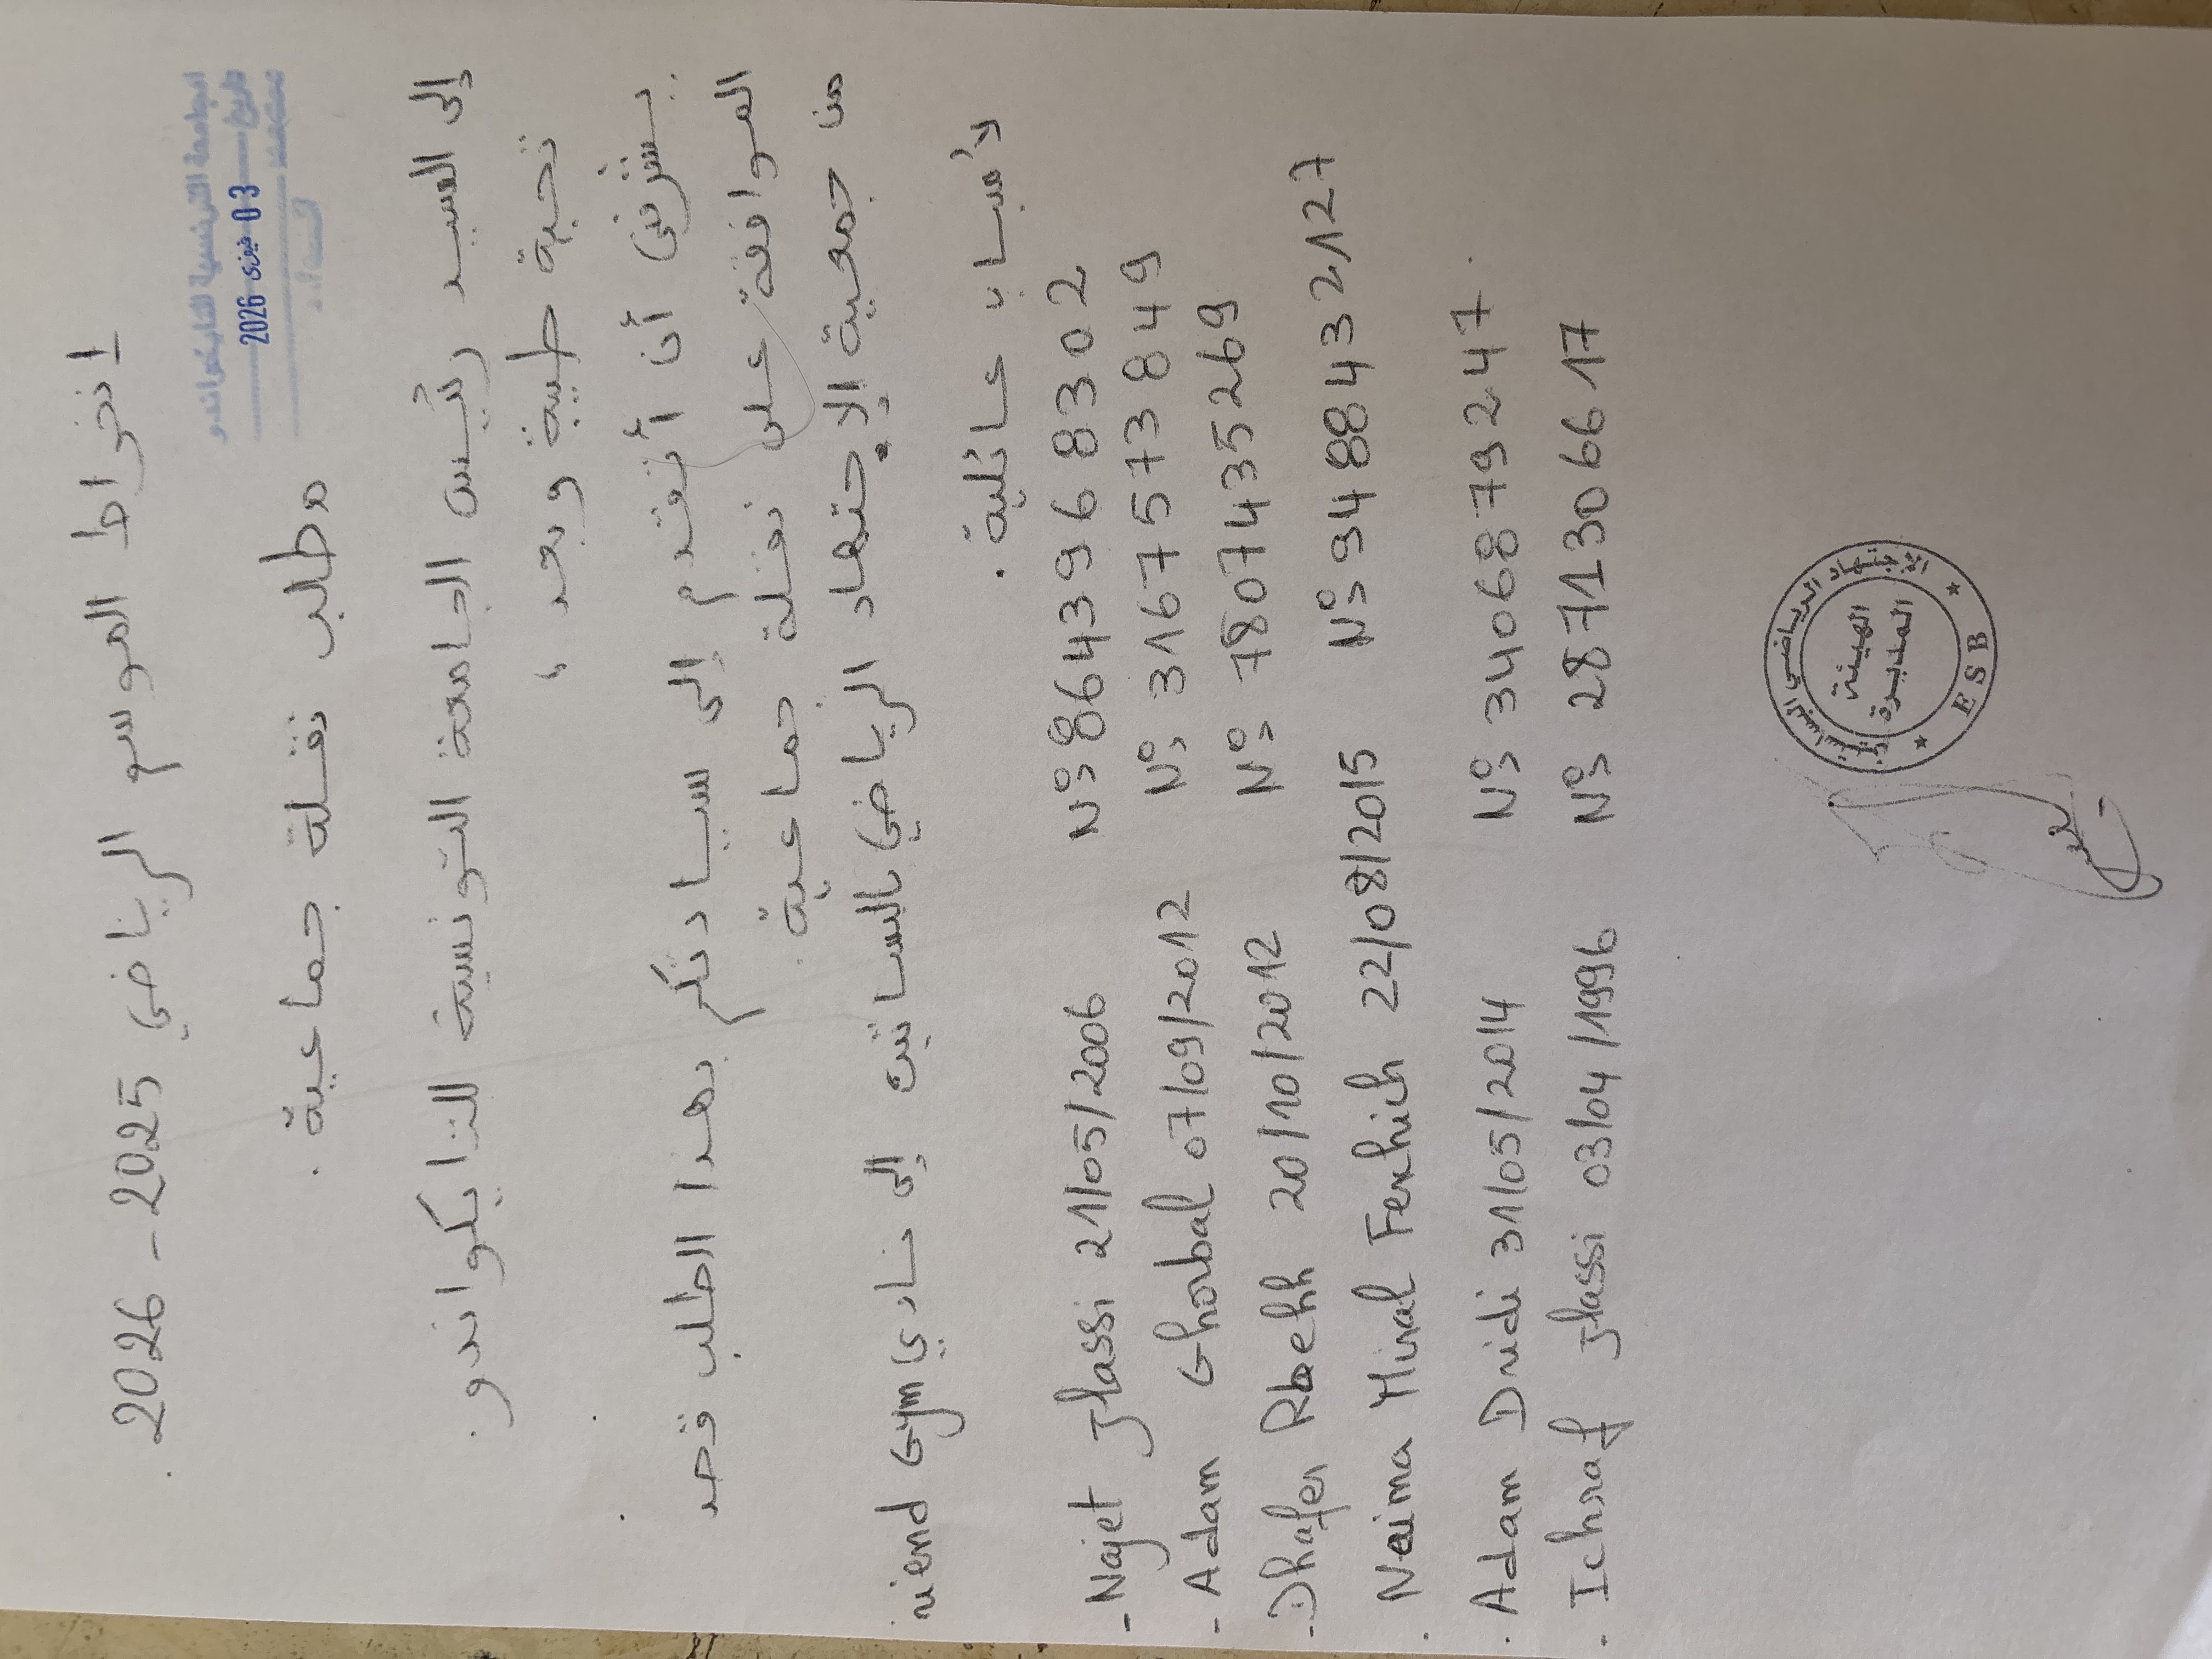 انخراط الموسم الرياضي 2025 - 2026.
الجامعة التونسية للتايكواندو
03 فيفري 2026
مطلب نقلة جماعية.
إلى السيد رئيس الجامعة التونسية للتايكواندو.
تحية طيبة وبعد،،
يشرفني أن أتقدم إلى سيادتكم بهذا الطلب قصد
الموافقة على نقلة جماعية.
من جمعية الإجتهاد الرياضي بالبساتين إلى نادي Gym
لأسباب عائلية.
- Najet Jlassi 21/05/2006 N°: 8643968302
- Adam Ghorbal 07/09/2012 N°: 3167573849
- Dhafer Rbehh 20/10/2012 N°: 7807435269
. Naima Minal Ferhich 22/08/2015 N°: 9488432127
. Adam Dridi 31/05/2014 N°: 3406879247.
. Ichraf Jlassi 03/04/1996 N°: 2871306617
الإجتهاد الرياضي
الهيئة
المديرة
★ E S B ★